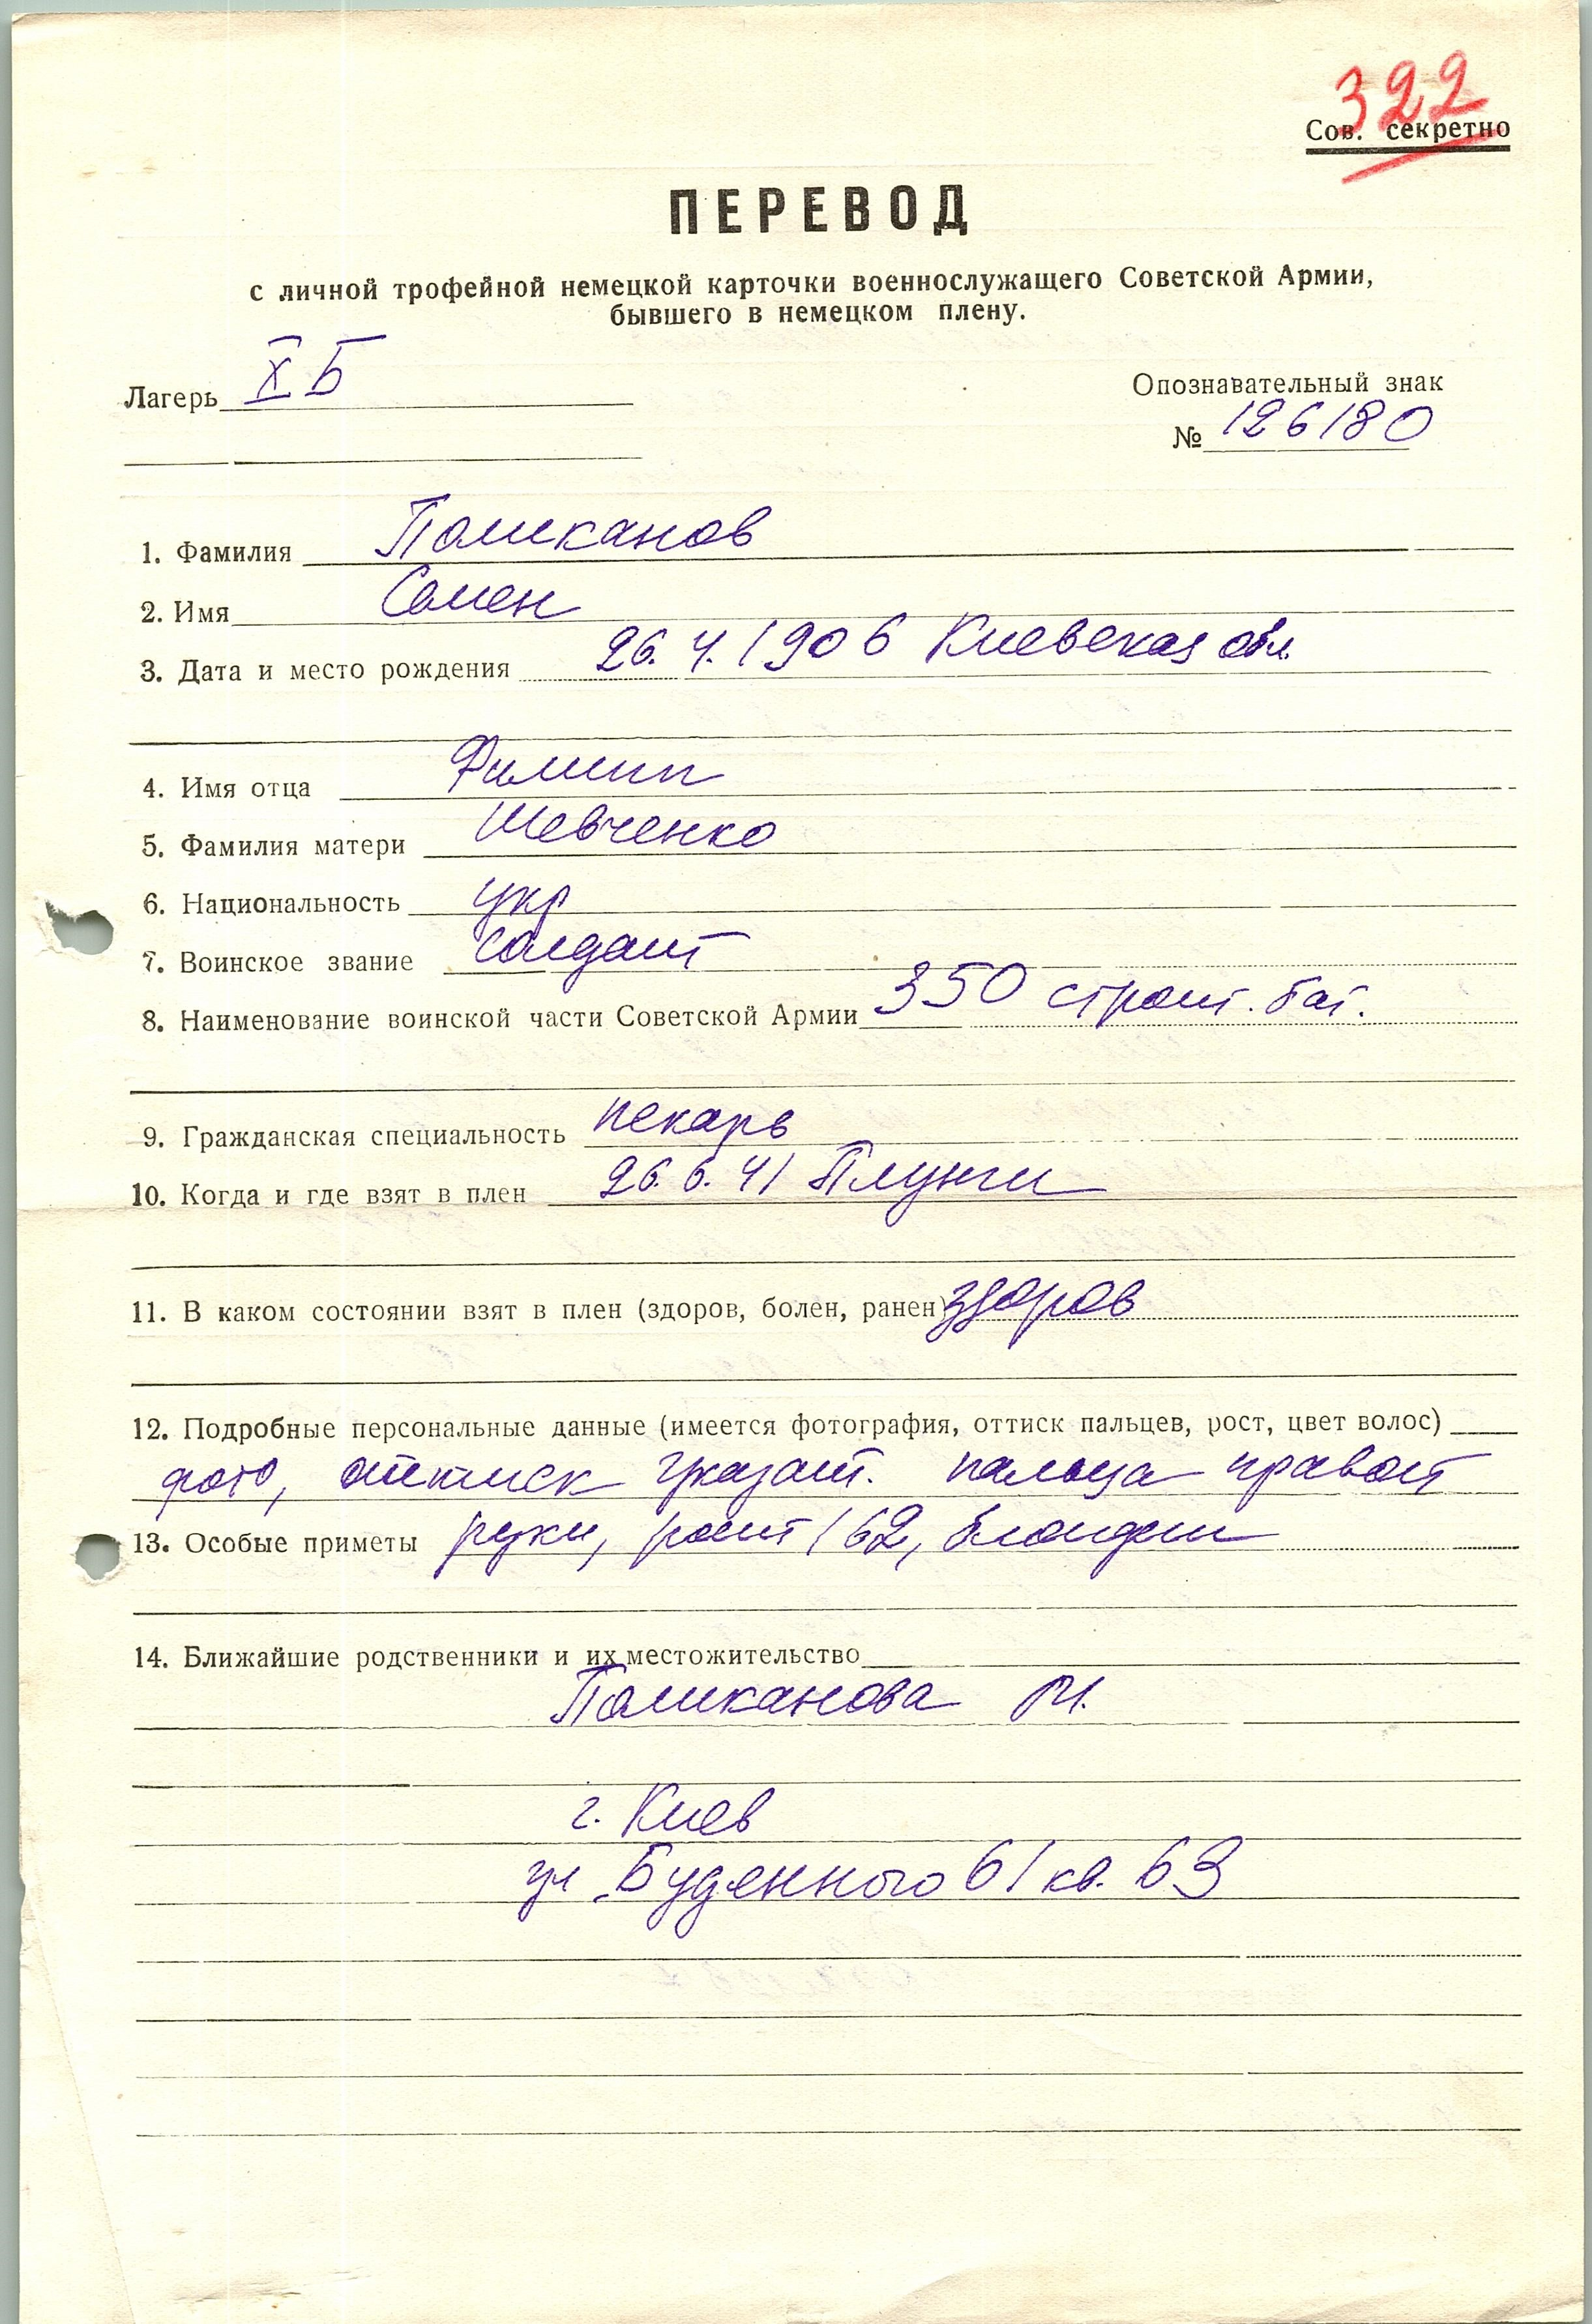 322
Сов. секретно
ПЕРЕВОД
с личной трофейной немецкой карточки военнослужащего Советской Армии,
бывшего в немецком плену.
Лагерь X Б
Опознавательный знак
№ 126180
1. Фамилия Поликанов
2. Имя Семен
3. Дата и место рождения 26.4.1906 Киевская обл.
4. Имя отца Филипп
5. Фамилия матери Шевченко
6. Национальность укр
7. Воинское звание солдат
8. Наименование воинской части Советской Армии 350 строит. бат.
9. Гражданская специальность пекарь
10. Когда и где взят в плен 26.6.41 Плунги
11. В каком состоянии взят в плен (здоров, болен, ранен) здоров
12. Подробные персональные данные (имеется фотография, оттиск пальцев, рост, цвет волос)
фото, оттиск указат. пальца правой
13. Особые приметы руки, рост 162, блондин
14. Ближайшие родственники и их местожительство
Поликанова М.
г. Киев
ул Буденного 61 кв. 63